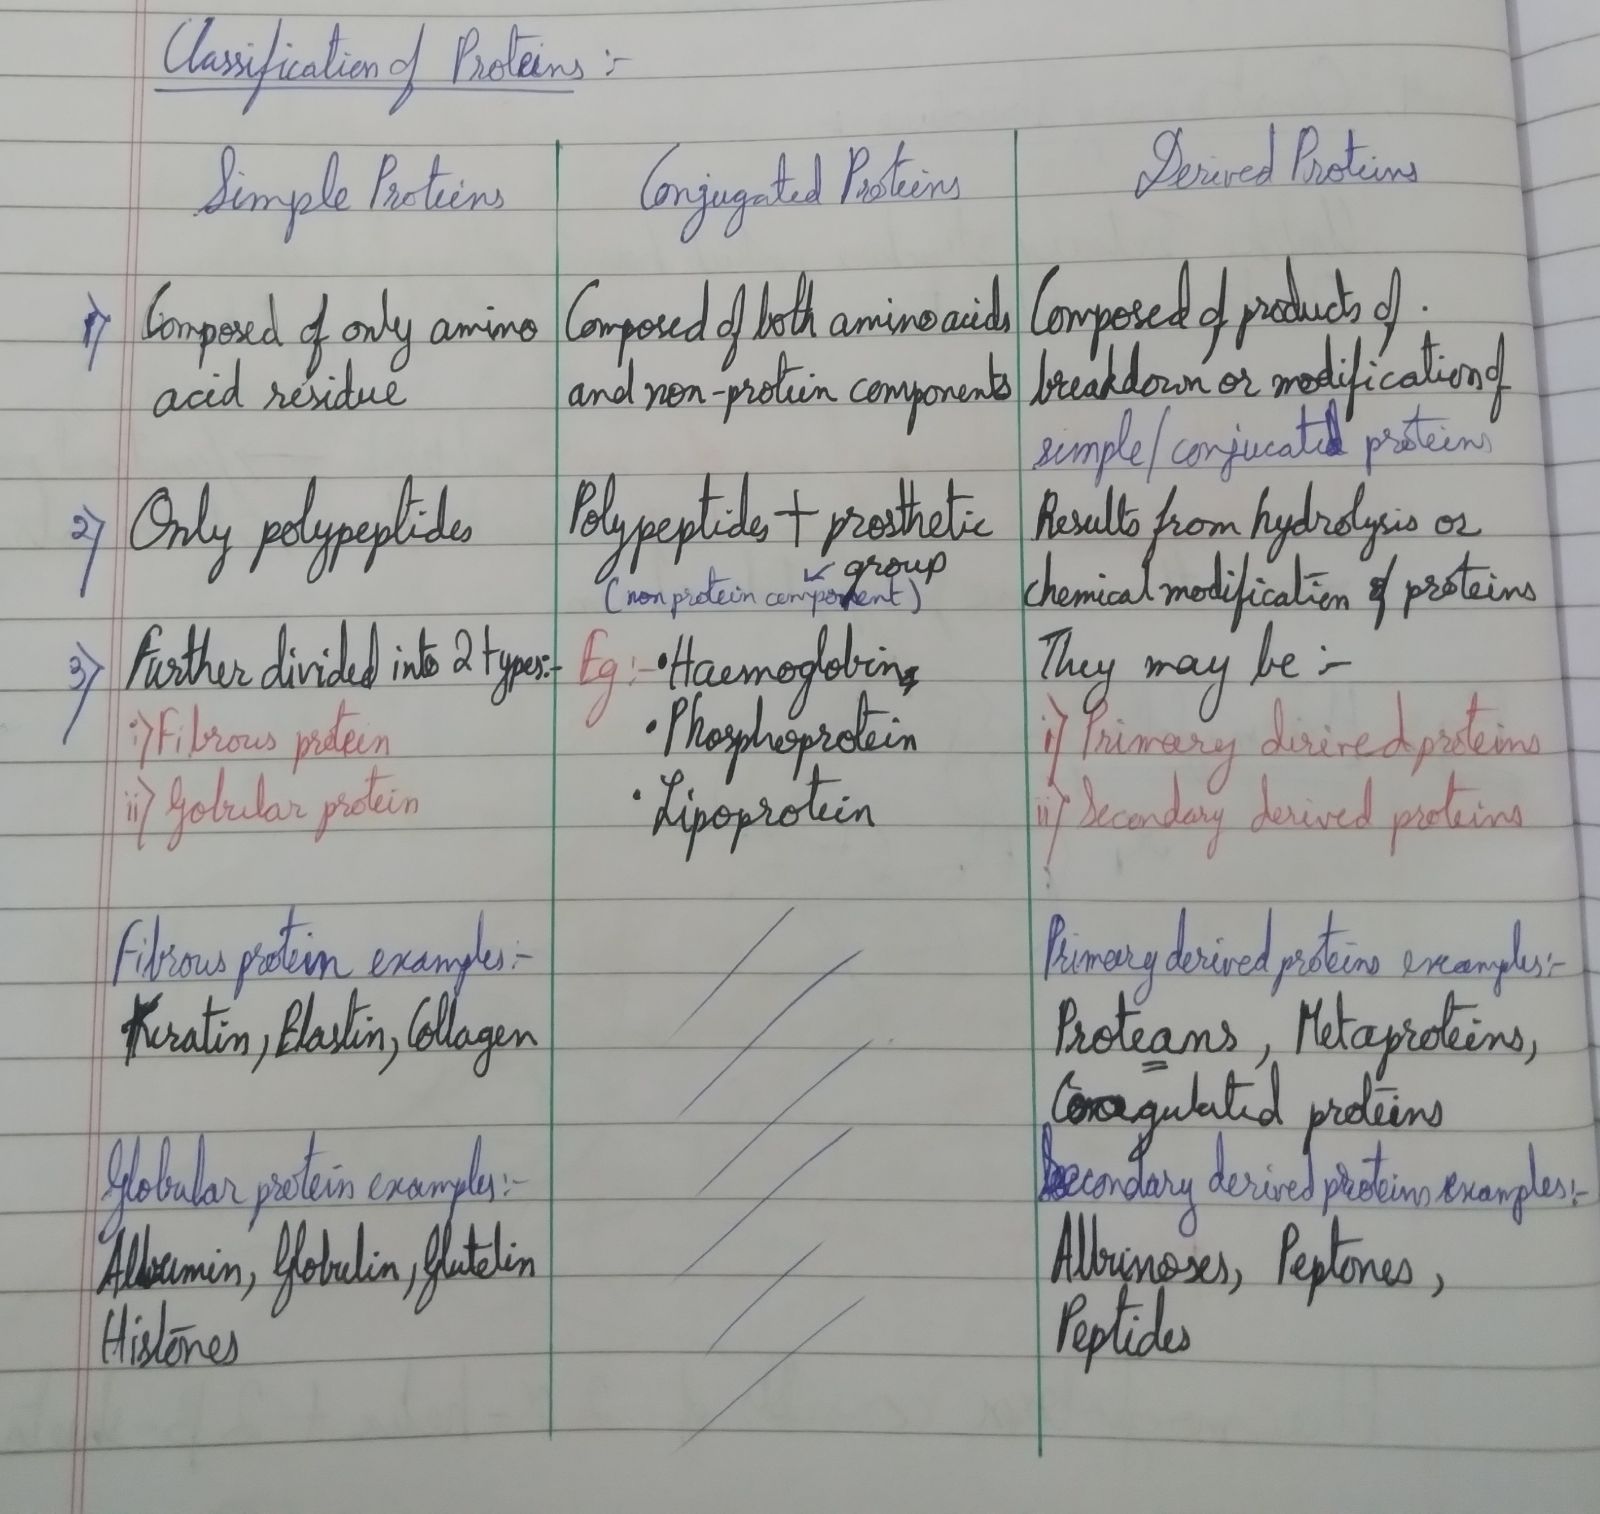 Classification of Proteins :-
Simple Proteins
Conjugated Proteins
Derived Proteins
1) Composed of only amino
acid residue
Composed of both amino acids
and non-protein components
Composed of products of .
breakdown or modification of
simple/conjucated proteins
2) Only polypeptides
Polypeptides + prosthetic
group
(non protein component)
Results from hydrolysis or
chemical modification of proteins
3) Further divided into 2 types:-
i) Fibrous protein
ii) Gobular protein
Eg :- • Haemoglobin
• Phosphoprotein
• Lipoprotein
They may be :-
i) Primary dirived proteins
ii) Secondary derived proteins
Fibrous protein examples:-
Keratin, Elastin, Collagen
Globular protein examples:-
Albumin, Globulin, Glutelin
Histones
Primary derived proteins examples:-
Proteans, Metaproteins,
Coagulated proteins
Secondary derived proteins examples:-
Albunoses, Peptones,
Peptides